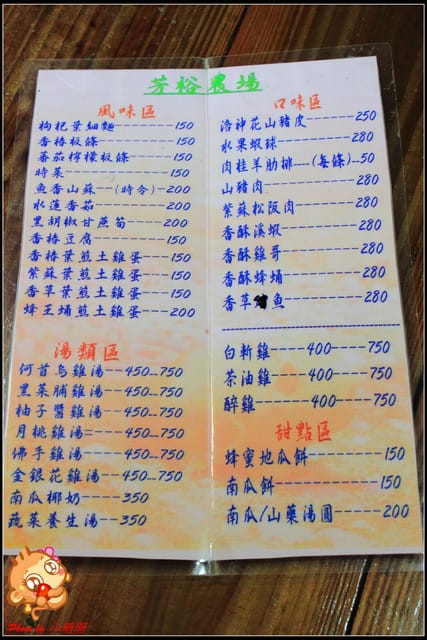 芳裕農場
風味區
枸杞葉細麵--------150
香椿板條----------150
番茄檸檬板條------150
時菜--------------150
魚香山蘇--(時令)--200
水蓮香菇----------200
黑胡椒甘蔗筍------200
香椿豆腐----------150
香椿葉煎土雞蛋----150
紫蘇葉煎土雞蛋----150
香草葉煎土雞蛋----150
蜂王蛹煎土雞蛋----200
湯類區
何首烏雞湯---450--750
黑菜脯雞湯---450--750
柚子醬雞湯---450--750
月桃雞湯=----450--750
佛手雞湯-----450--750
金銀花雞湯---450--750
南瓜椰奶-----350
蔬菜養生湯---350
口味區
洛神花山豬皮-------250
水果蝦球-----------280
肉桂羊肋排----(每條)--50
山豬肉-------------280
紫蘇松阪肉---------280
香酥溪蝦-----------280
香酥雞哥-----------280
香酥蜂蛹-----------280
香草魚-------------280
白斬雞----400----750
茶油雞----400----750
醉雞------400----750
甜點區
蜂蜜地瓜餅--------150
南瓜餅------------150
南瓜/山藥湯圓-----200
Photo by 小丽丽